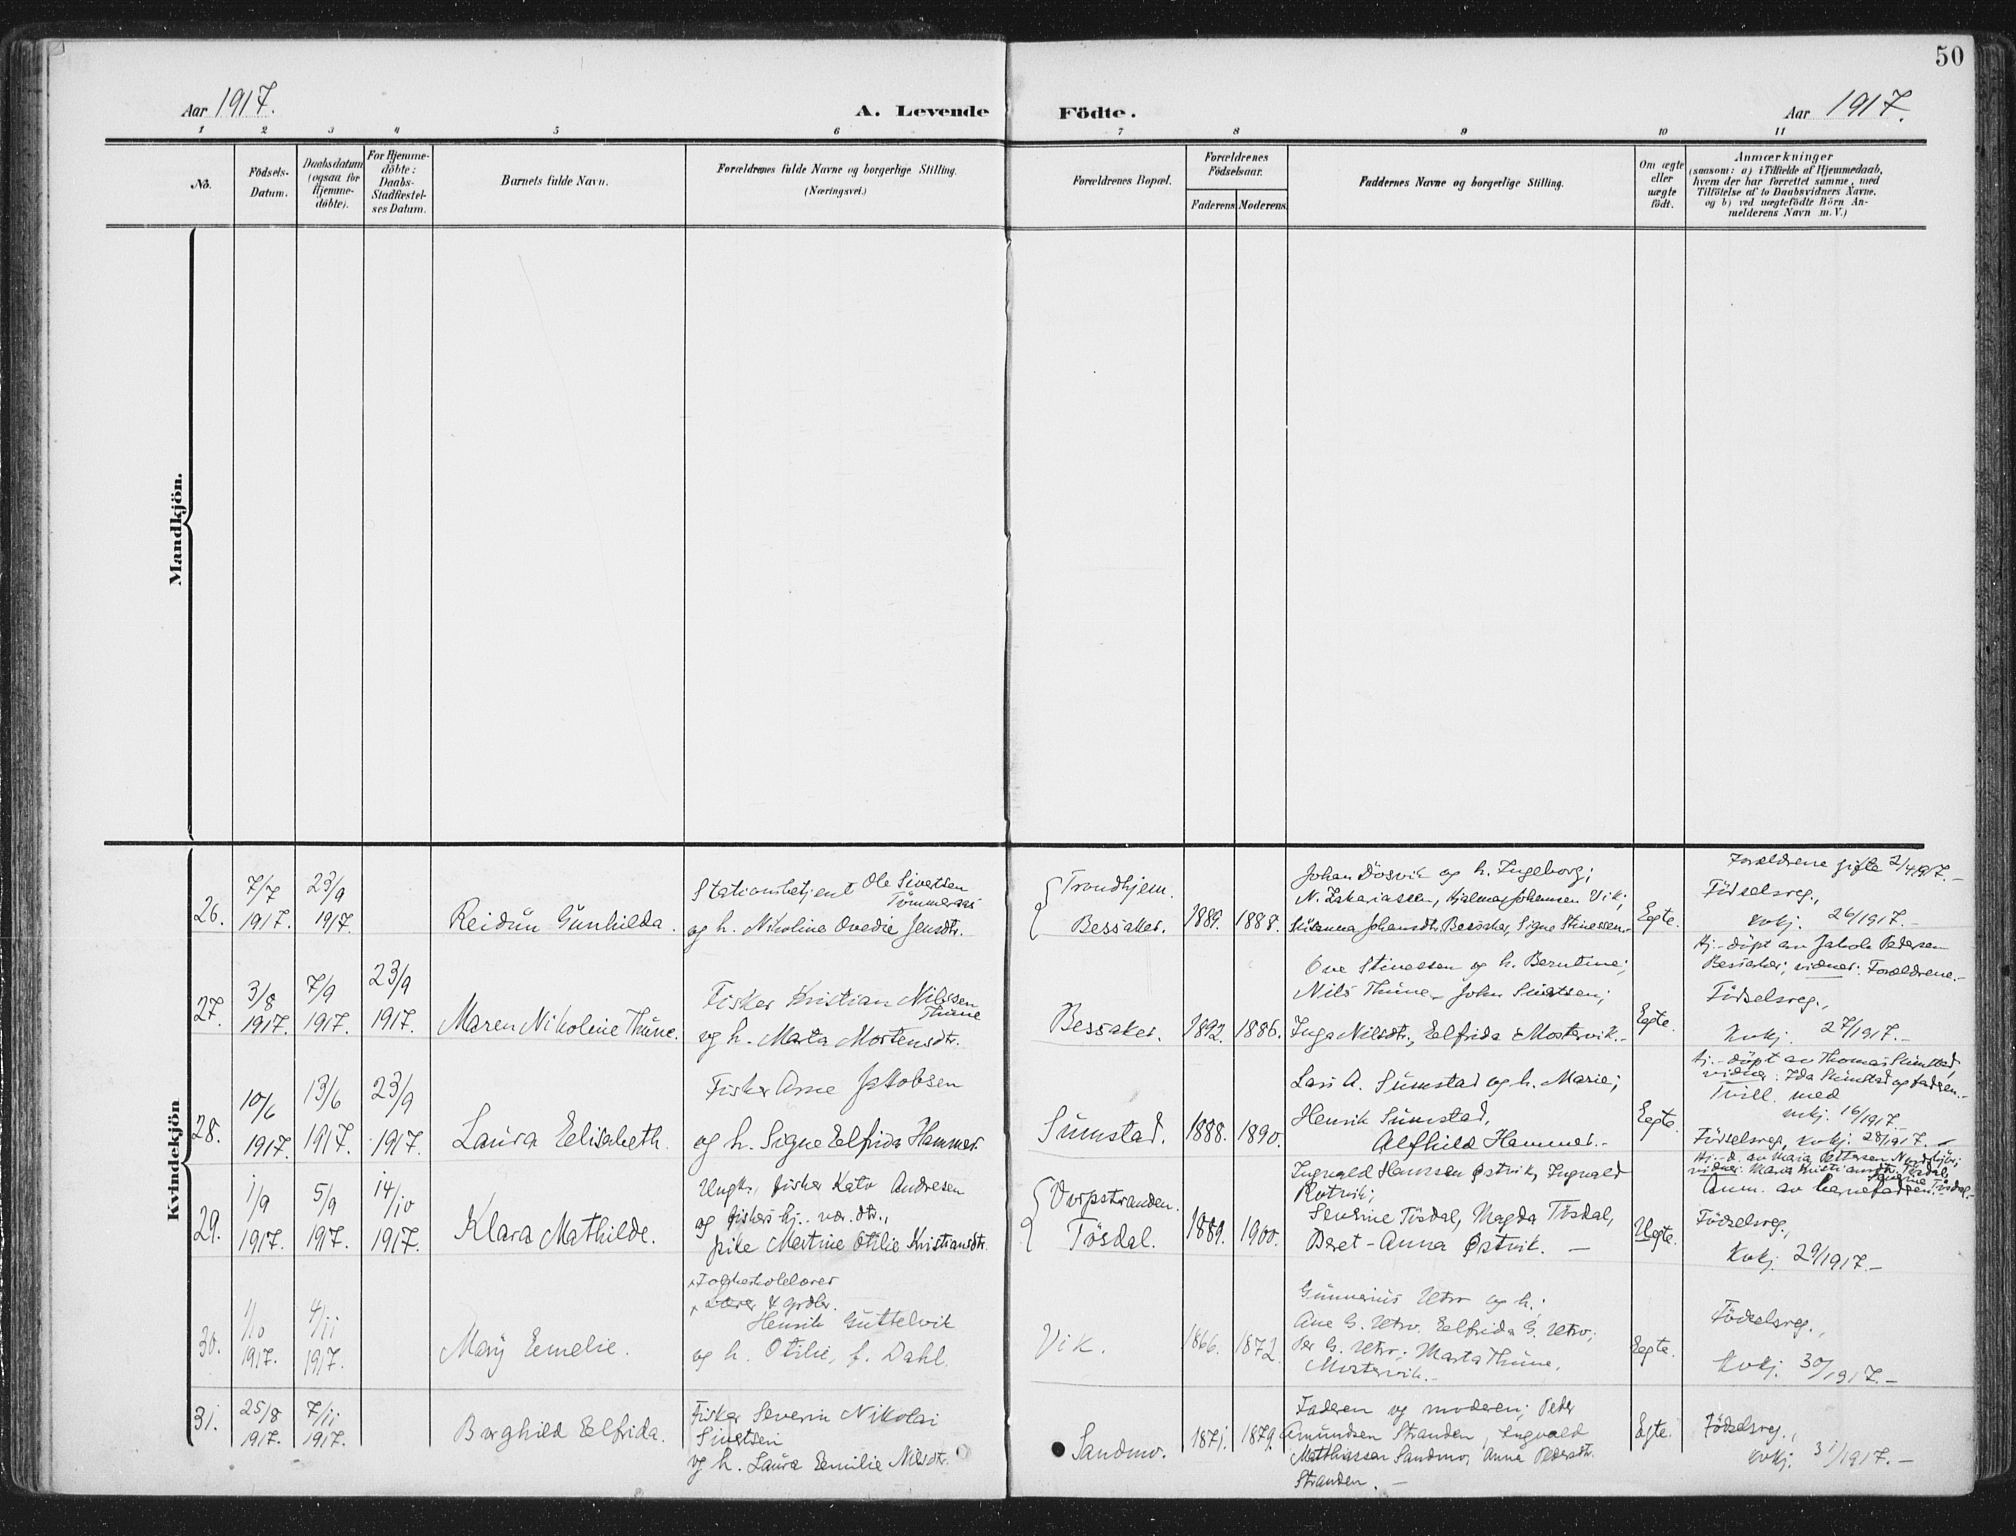 50
Aar 1917.
A. Levende Födte.
Aar 1917.
1 2 3 4 5 6 7 8 9 10 11
No.
Födsels-
Datum.
Daabsdatum
(ogsaa for
Hjemme-
döbte).
For Hjemme-
döbte:
Daabs-
Stadfæstel-
ses Datum.
Barnets fulde Navn.
Forældrenes fulde Navne og borgerlige Stilling.
(Næringsvei.)
Forældrenes Bopæl.
Forældrenes
Födselsaar.
Faderens Moderens
Faddernes Navne og borgerlige Stilling.
Om ægte
eller
uægte
födt.
Anmærkninger
(saasom: a) i Tilfælde af Hjemmedaab,
hvem der har forrettet samme, med
Tilföielse af to Daabsvidners Navne.
og b) ved uægtefödte Börn An-
melderens Navn m. V.)
Mandkjön.
Kvindekjön
26.
7/7
1917.
23/9
1917.
Reidun Gunhilda.
Stationsbetjent Ole Sivertsen
Tömmeraas
og h. Nikoline Ovedie Jensdtr.
Trondhjem.
Bessaker.
1889. 1888.
Johan Dösvik og h. Ingeborg;
N. Zakariassen, Hjalmar Johansen Vik;
Susanna Johansdtr. Bessaker, Signe Stinessen.
Egte.
Forældrene gifte 2/4 1917.-
Födselsreg.,
kvkj. 26/1917.-
27.
3/8
1917.
7/9
1917.
23/9
1917.
Maren Nikoline Thune.
Fisker Kristian Nilssen
Thune
og h. Marta Mortensdtr.
Bessaker.
1892. 1886.
Ove Stinessen og h. Berntine;
Nils Thune, John Sivertsen;
Inga Nilsdtr., Elfrida Mostervik.-
Egte.
Hj.-döpt av Jakob Pedersen
Bessaker; vidner: Forældrene.-
Födselsreg.,
kvkj. 27/1917.-
28.
10/6
1917.
13/6
1917.
23/9
1917.
Laura Elisabeth.
Fisker Arne Jakobsen
og h. Signe Elfrida Hammer.
Sumstad.
1888. 1890.
Lars A. Sumstad og h. Marie;
Henrik Sumstad,
Alfhild Hammer.-
Egte.
Hj.-döpt av Thomas Sumstad,
vidner: Ida Sumstad og faderen.-
Tvill. med
mkj. 16/1917.-
Födselsreg., kvkj. 28/1917.-
29.
1/9
1917.
5/9
1917.
14/10
1917.
Klara Mathilde.
Ungk., fisker Kato Andresen
og fiskers hj. vær. dtr.,
pike Martine Otilie Kristiansdtr.
Vorpstranden.
Tösdal.
1889. 1900.
Ingvald Hanssen Østvik, Ingvald
Rotvik;
Severine Tösdal, Magda Tösdal,
Beret-Anna Østvik. -
Uegte.
Hj.-d. av Maria Pettersen
vidner: Maria Kristiansdtr. Tösdal,
Severine Tösdal.-
Anm. av barnefaderen.-
Födselsreg.,
kvkj. 29/1917.-
30.
1/10
1917.
4/11
1917.
Mary Emelie.
Folkeskolelærer
Lærer & grdbr.
Henrik Guttelvik
og h. Otilie, f. Dahl.
Vik.
1866. 1872.
Gunnerius Utvo og h.;
Ane G. Utvo, Elfrida G. Utvo;
Per G. Utvo; Marta Thune,
Mostervik.-
Egte.
Födselsreg.,
kvkj. 30/1917.-
31.
25/8
1917.
7/11
1917.
Borghild Elfrida.
Fisker Severin Nikolai
Sivertsen
og h. Laura Emilie Nilsdtr.
Sandmo.
1871. 1879.
Faderen og moderen; Peder
Amundsen Stranden, Ingvald
Matthiassen Sandmo, Anna Pedersdtr.
Stranden. -
Egte.
Födselsreg.,
kvkj. 31/1917.-